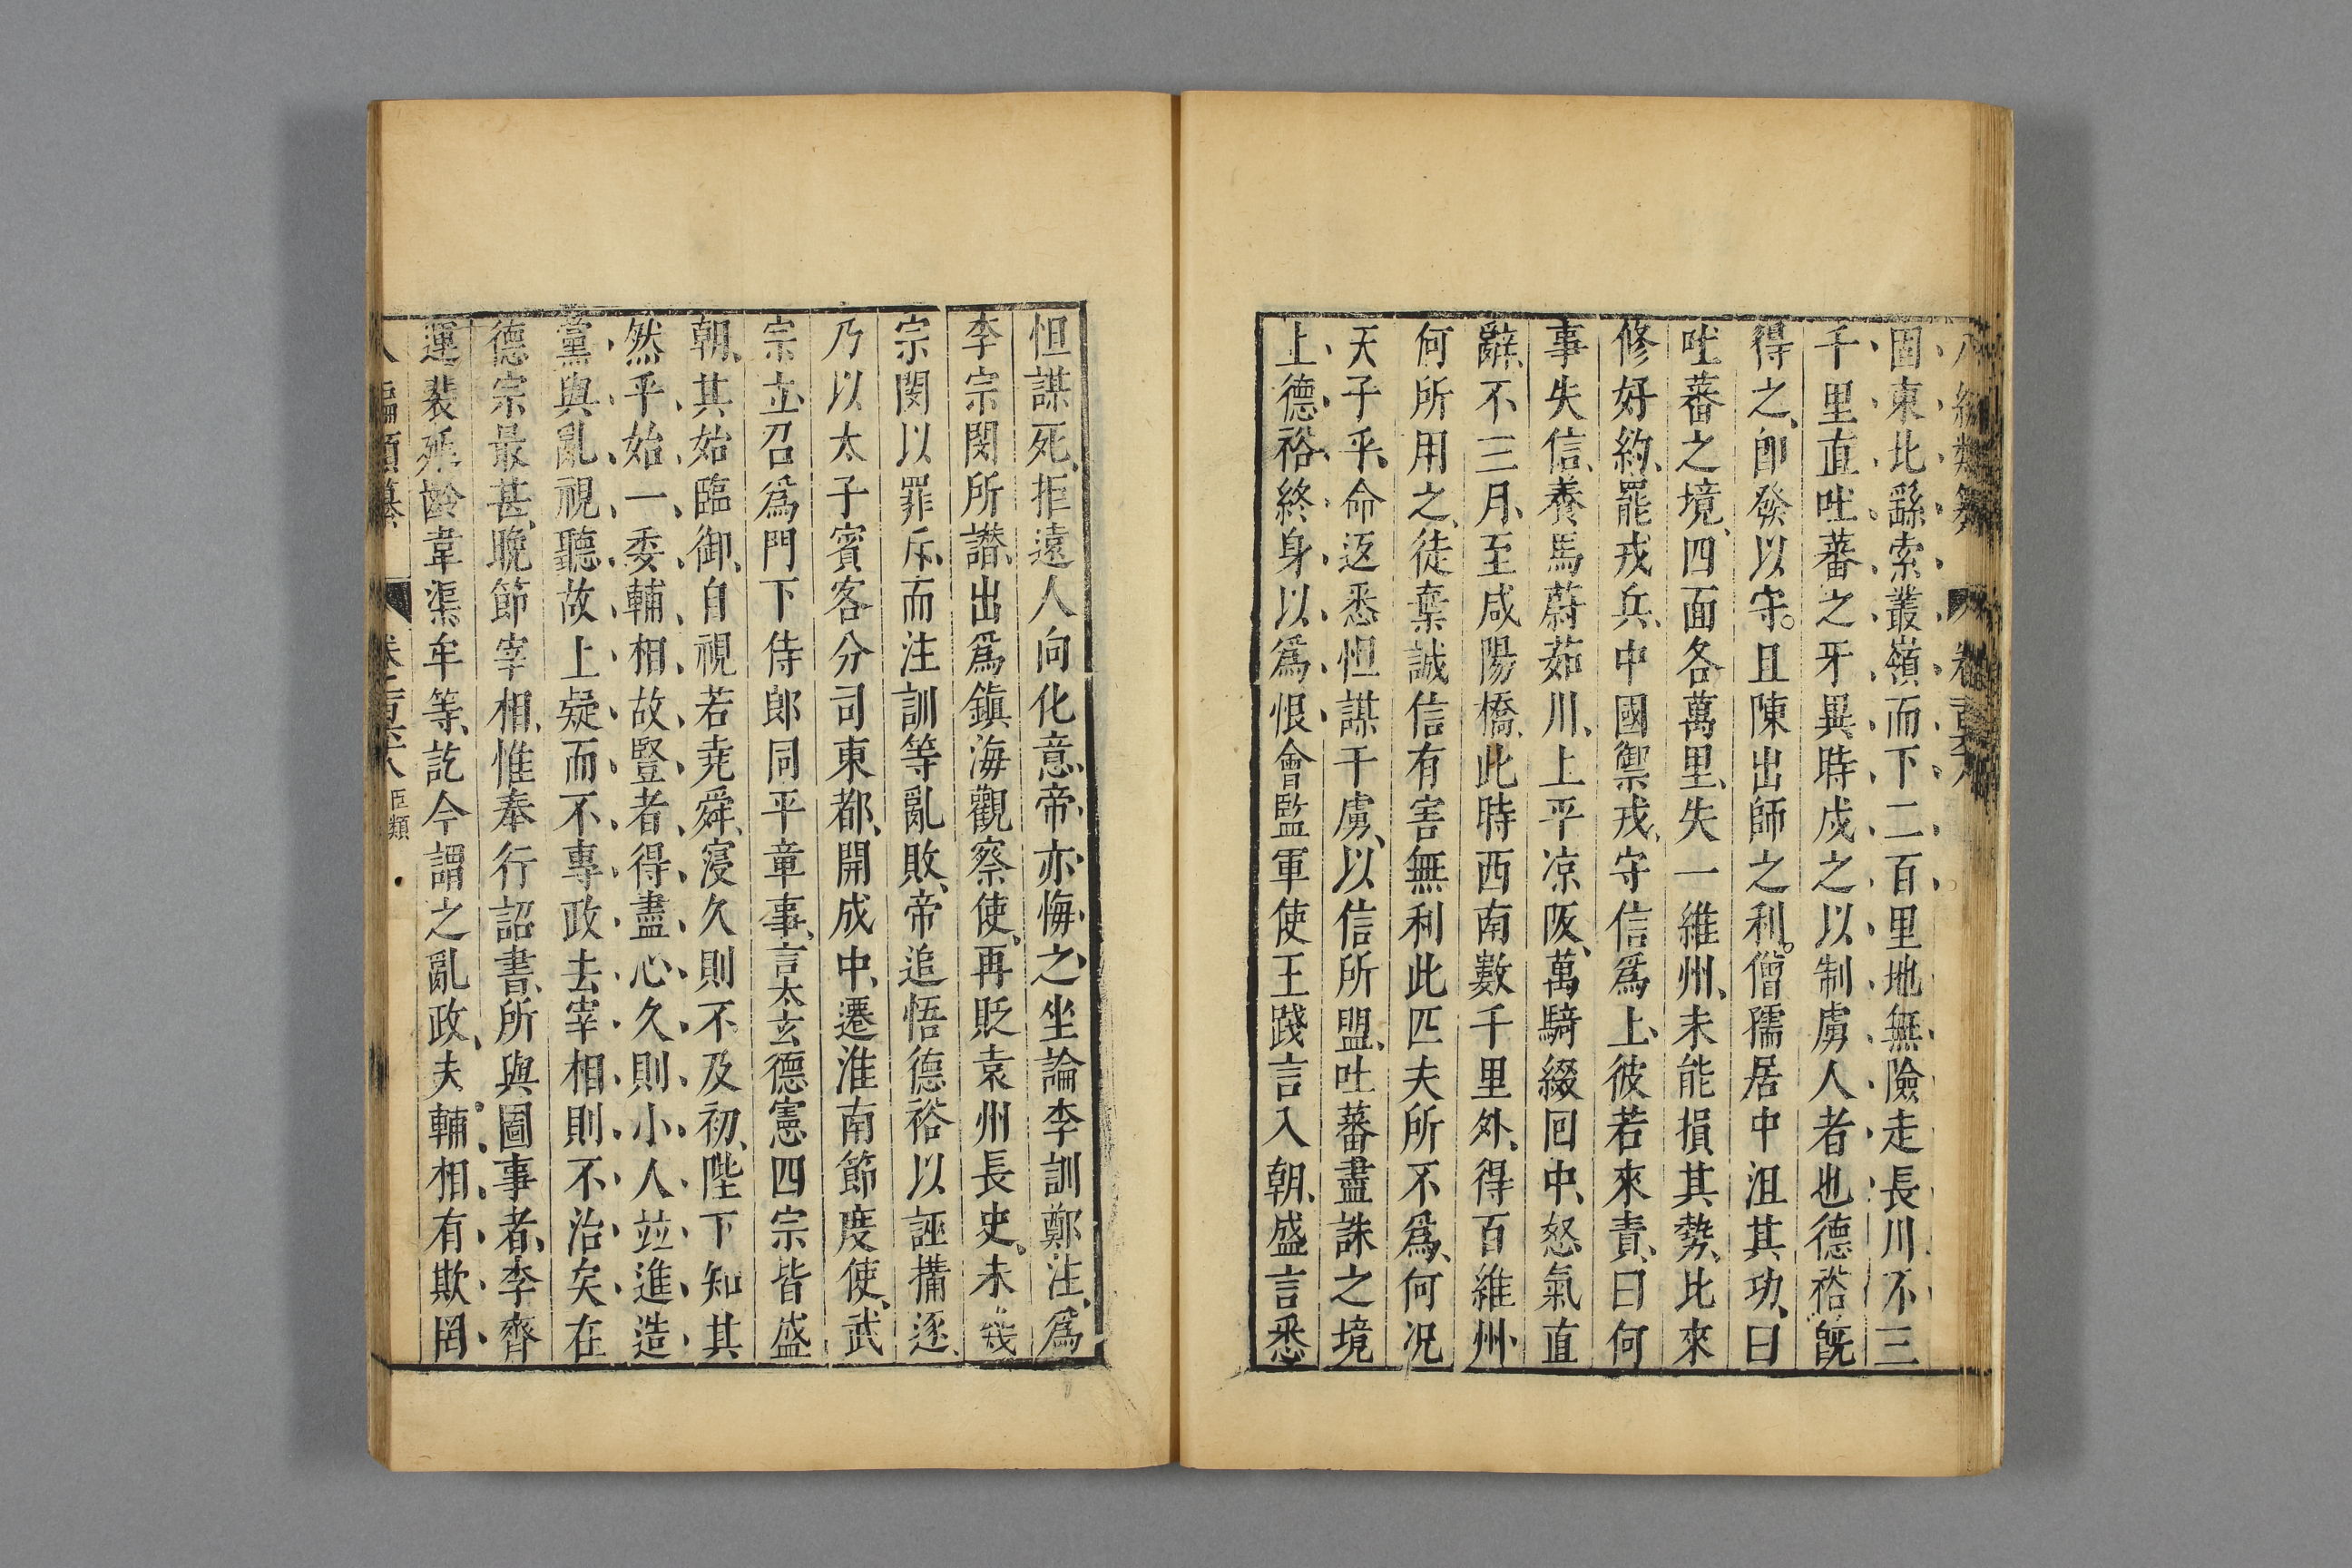 固東北繇索叢嶺而下二百里地無險走長川不三
千里直吐蕃之牙異時戍之以制虜人者也德裕既
得之即發以守且陳出師之利僧孺居中沮其功曰
吐蕃之境四面各萬里失一維州未能損其勢比來
修好約罷戍兵中國禦戎守信爲上彼若來責曰何
事失信養馬蔚茹川上平凉阪萬騎綴回中怒氣直
辭不三月至咸陽橋此時西南數千里外得百維州
何所用之徒棄誠信有害無利此匹夫所不爲何况
天子乎命返悉怛謀于虜以信所盟吐蕃盡誅之境
上德裕終身以爲恨會監軍使王踐言入朝盛言悉
怛謀死拒遠人向化意帝亦悔之坐論李訓鄭注爲
李宗閔所譖出爲鎮海觀察使再貶袁州長史未幾
宗閔以罪斥而注訓等亂敗帝追悟德裕以誣搆逐
乃以太子賓客分司東都開成中遷淮南節度使武
宗立召爲門下侍郎同平章事言太玄德憲四宗皆盛
朝其始臨御自視若堯舜寖久則不及初陛下知其
然乎始一委輔相故賢者得盡心久則小人並進造
黨與亂視聽故上疑而不專政去宰相則不治矣在
德宗最甚晚節宰相惟奉行詔書所與圖事者李齊
運裴延齡韋渠牟等訖今謂之亂政夫輔相有欺罔
八編類纂 卷二百六八 臣類